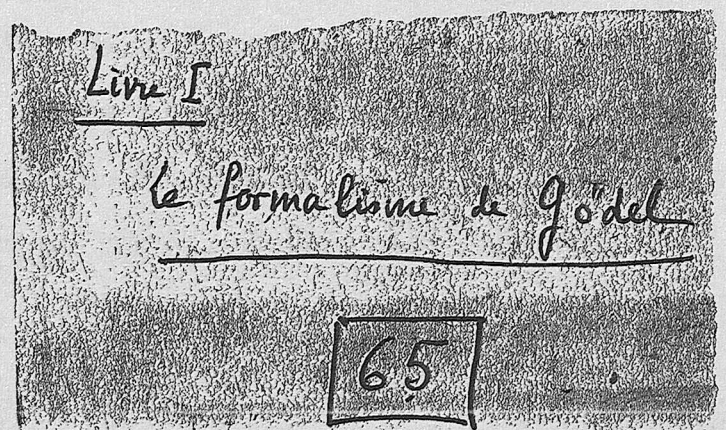 Livre I
le formalisme de Gödel
65